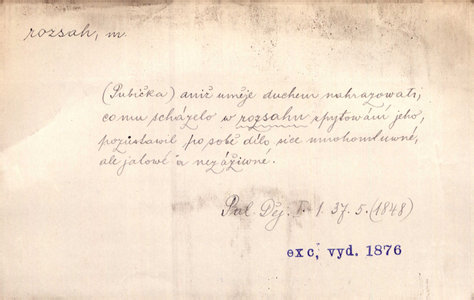 rozsah, m.
(Pubička) aniž uměje duchem nahrazovati,
co mu scházelo w rozsahu zpytowání jeho,
pozůstavil po sobě dílo sice mnohomluwné,
ale jalowé a nezáživné.
Pal. Děj. I. 1. 37. 5. (1848)
exc, vyd. 1876